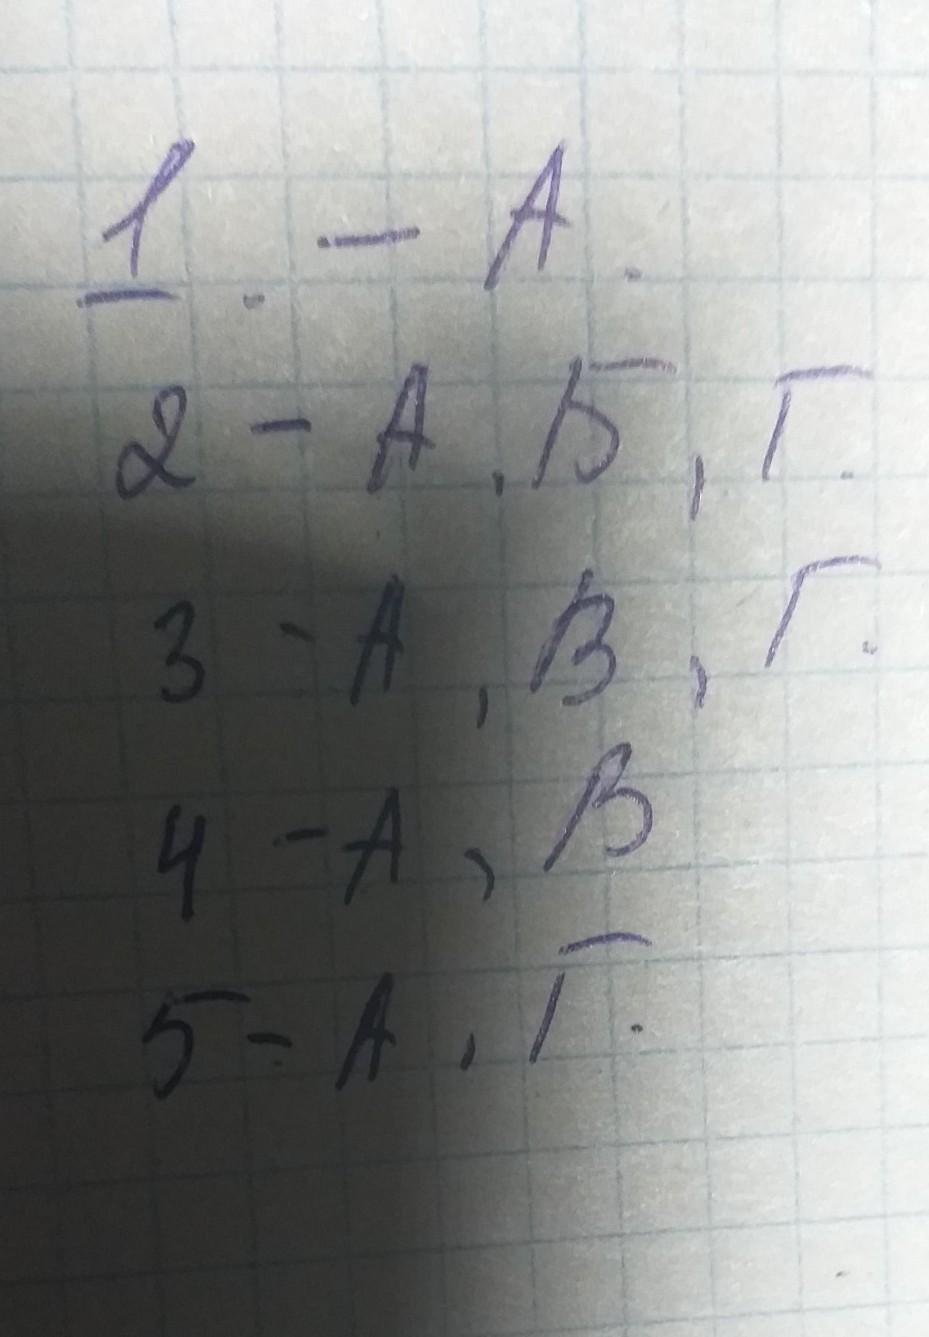 1. — А.
2 - А, Б, Г.
3 - А, В, Г.
4 - А, В
5 - А, Г.